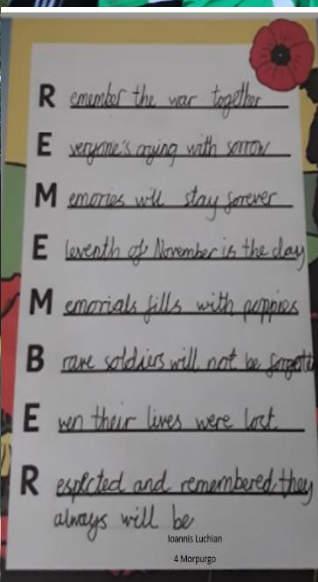 Remember the war together
Everyone's crying with sorrow
Memories will stay forever
Eleventh of November is the day
Memorials fills with poppies
Brave soldiers will not be forgotten
Even their lives were lost
Respected and remembered, they
always will be
Ioannis Luchian
4 Morpurgo